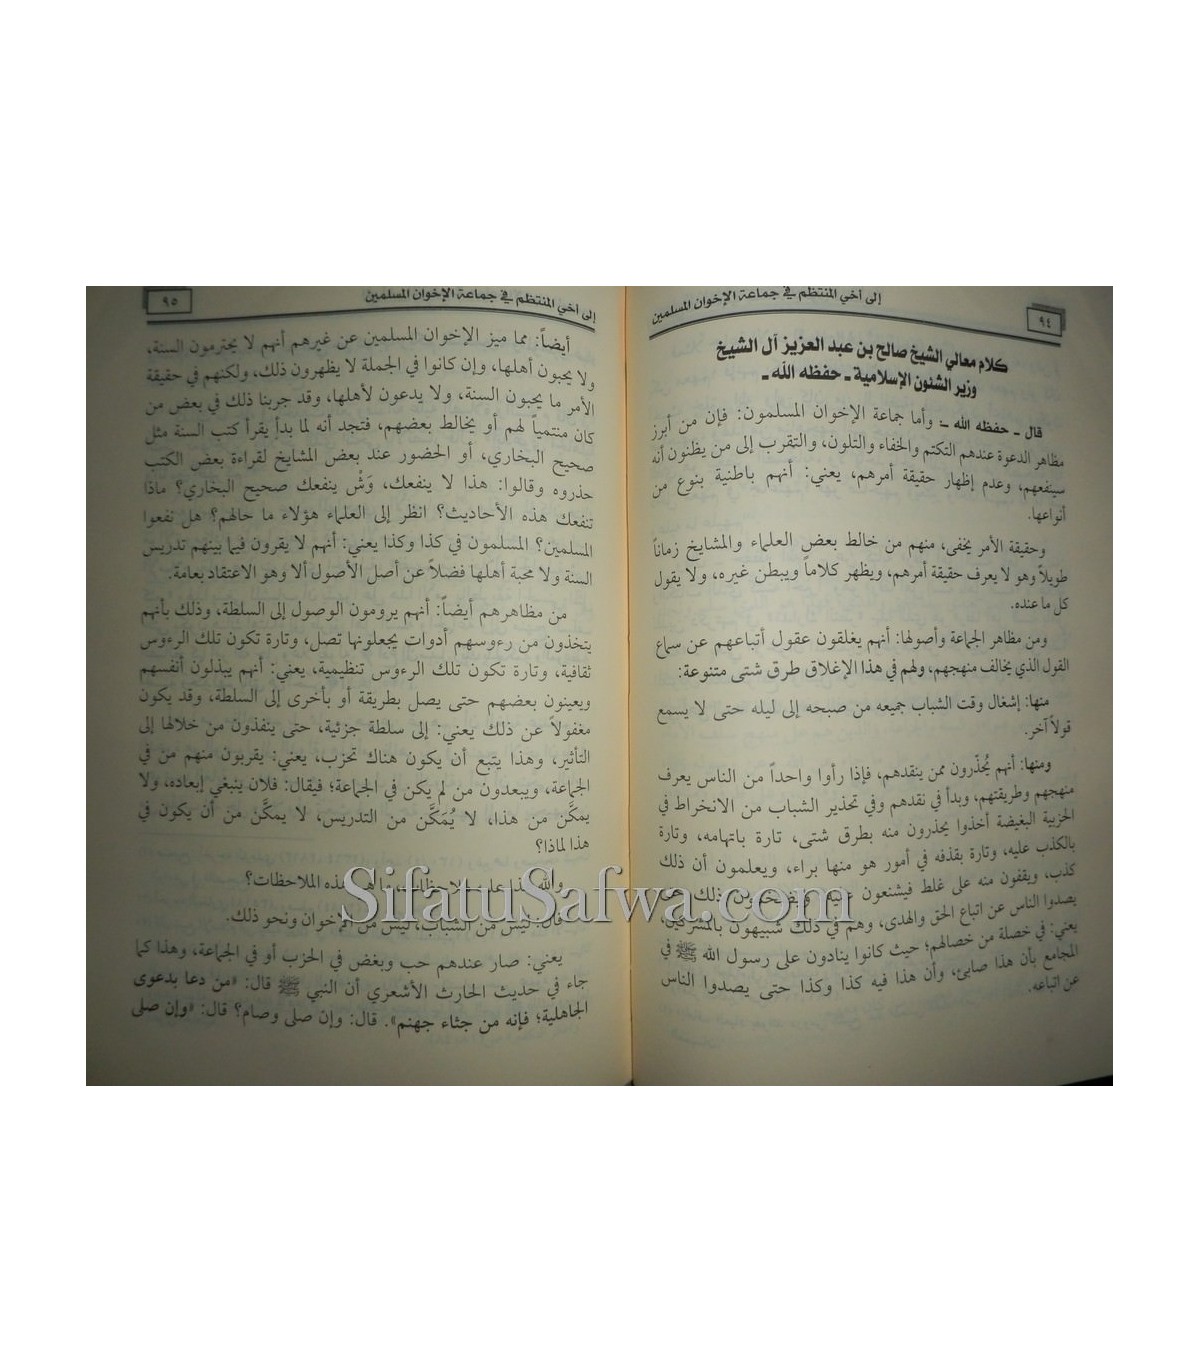 إلى أخي المنتظم في جماعة الإخوان المسلمين
٩٤
كلام معالي الشيخ صالح بن عبد العزيز آل الشيخ
وزير الشئون الإسلامية ـ حفظه الله ـ
قال ـ حفظه الله ـ: وأما جماعة الإخوان المسلمون: فإن من أبرز
مظاهر الدعوة عندهم التكتم والخفاء والتلون، والتقرب إلى من يظنون أنه
سينفعهم، وعدم إظهار حقيقة أمرهم، يعني: أنهم باطنية بنوع من
أنواعها.
وحقيقة الأمر يخفى، منهم من خالط بعض العلماء والمشايخ زماناً
طويلاً وهو لا يعرف حقيقة أمرهم، ويظهر كلاماً ويبطن غيره، ولا يقول
كل ما عنده.
ومن مظاهر الجماعة وأصولها: أنهم يغلقون عقول أتباعهم عن سماع
القول الذي يخالف منهجهم، ولهم في هذا الإغلاق طرق شتى متنوعة:
منها: إشغال وقت الشباب جميعه من صبحه إلى ليله حتى لا يسمع
قولاً آخر.
ومنها: أنهم يُحذّرون ممن ينقدهم، فإذا رأوا واحداً من الناس يعرف
منهجهم وطريقتهم، وبدأ في نقدهم وفي تحذير الشباب من الانخراط في
الحزبية البغيضة أخذوا يحذرون منه بطرق شتى، تارة باتهامه، وتارة
بالكذب عليه، وتارة بقذفه في أمور هو منها براء، ويعلمون أن ذلك
كذب، ويقفون منه على غلط فيشنعون عليه ويضخمون ذلك حتى
يصدوا الناس عن اتباع الحق والهدى، وهم في ذلك شبيهون بالمشركين،
يعني: في خصلة من خصالهم؛ حيث كانوا ينادون على رسول الله ﷺ في
المجامع بأن هذا صابئ، وأن هذا فيه كذا وكذا حتى يصدوا الناس
عن اتباعه.
إلى أخي المنتظم في جماعة الإخوان المسلمين
٩٥
أيضاً: مما ميز الإخوان المسلمين عن غيرهم أنهم لا يحترمون السنة،
ولا يحبون أهلها، وإن كانوا في الجملة لا يظهرون ذلك، ولكنهم في حقيقة
الأمر ما يحبون السنة، ولا يدعون لأهلها، وقد جربنا ذلك في بعض من
كان منتمياً لهم أو يخالط بعضهم، فتجد أنه لما بدأ يقرأ كتب السنة مثل
صحيح البخاري، أو الحضور عند بعض المشايخ لقراءة بعض الكتب
حذروه وقالوا: هذا لا ينفعك، وَشْ ينفعك صحيح البخاري؟ ماذا
تنفعك هذه الأحاديث؟ انظر إلى العلماء هؤلاء ما حالهم؟ هل نفعوا
المسلمين؟ المسلمون في كذا وكذا يعني: أنهم لا يقرون فيما بينهم تدريس
السنة ولا محبة أهلها فضلاً عن أصل الأصول ألا وهو الاعتقاد بعامة.
من مظاهرهم أيضاً: أنهم يرومون الوصول إلى السلطة، وذلك بأنهم
يتخذون من رءوسهم أدوات يجعلونها تصل، وتارة تكون تلك الرءوس
ثقافية، وتارة تكون تلك الرءوس تنظيمية، يعني: أنهم يبذلون أنفسهم
ويعينون بعضهم حتى يصل بطريقة أو بأخرى إلى السلطة، وقد يكون
مغفولاً عن ذلك يعني: إلى سلطة جزئية، حتى ينفذون من خلالها إلى
التأثير، وهذا يتبع أن يكون هناك تحزب، يعني: يقربون منهم من في
الجماعة، ويبعدون من لم يكن في الجماعة؛ فيقال: فلان ينبغي إبعاده، ولا
يمكَّن من هذا، لا يُمَكَّن من التدريس، لا يمكَّن من أن يكون في
هذا لماذا؟
والله هذا عليه ملاحظات، ما هي هذه الملاحظات؟
قال: ليس من الشباب، ليس من الإخوان ونحو ذلك.
يعني: صار عندهم حب وبغض في الحزب أو في الجماعة، وهذا كما
جاء في حديث الحارث الأشعري أن النبي ﷺ قال: «من دعا بدعوى
الجاهلية؛ فإنه من جثاء جهنم». قال: وإن صلى وصام؟ قال: «وإن صلى
SifatuSafwa.com